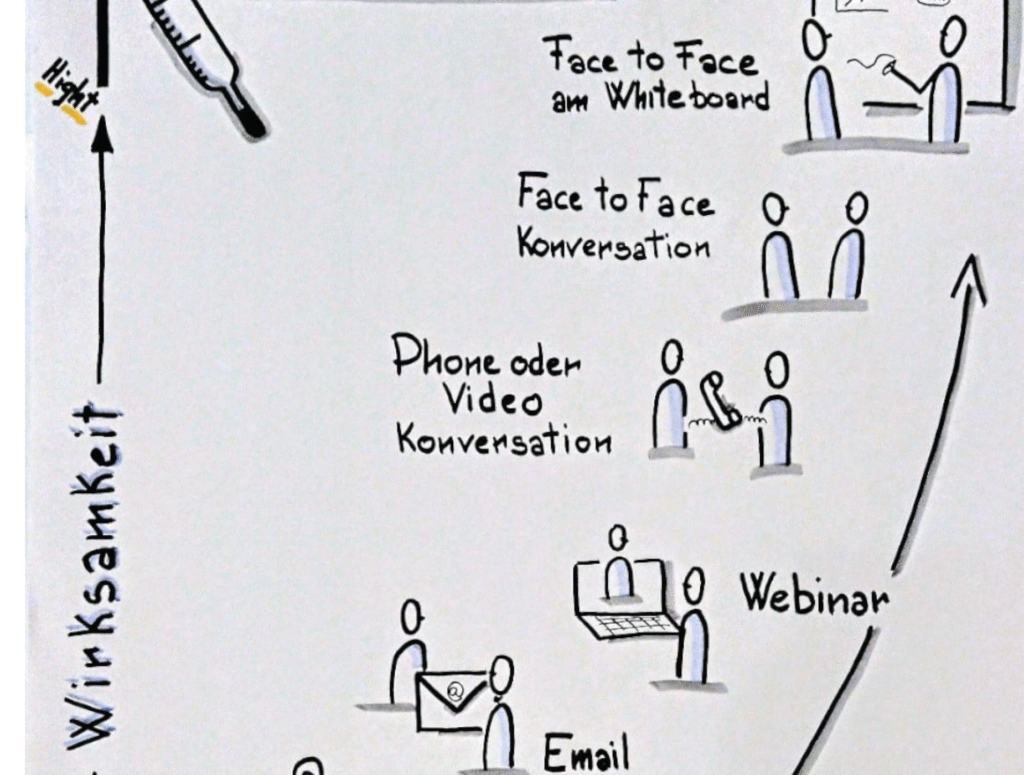 Hight
Face to Face
am Whiteboard
Face to Face
Konversation
Phone oder
Video
Konversation
Webinar
@
Email
Winksamkeit